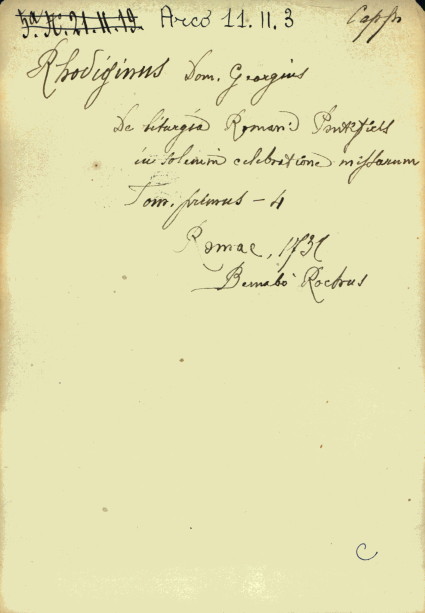 5ª N: 21.11.19. Arco 11.II.3
Rhodiginus Dom. Georgius
De liturgia Romani Pontificis
in solemni celebratione missarum
Tom. primus - 4
Romae, 1731
Bernabò Rochus
C